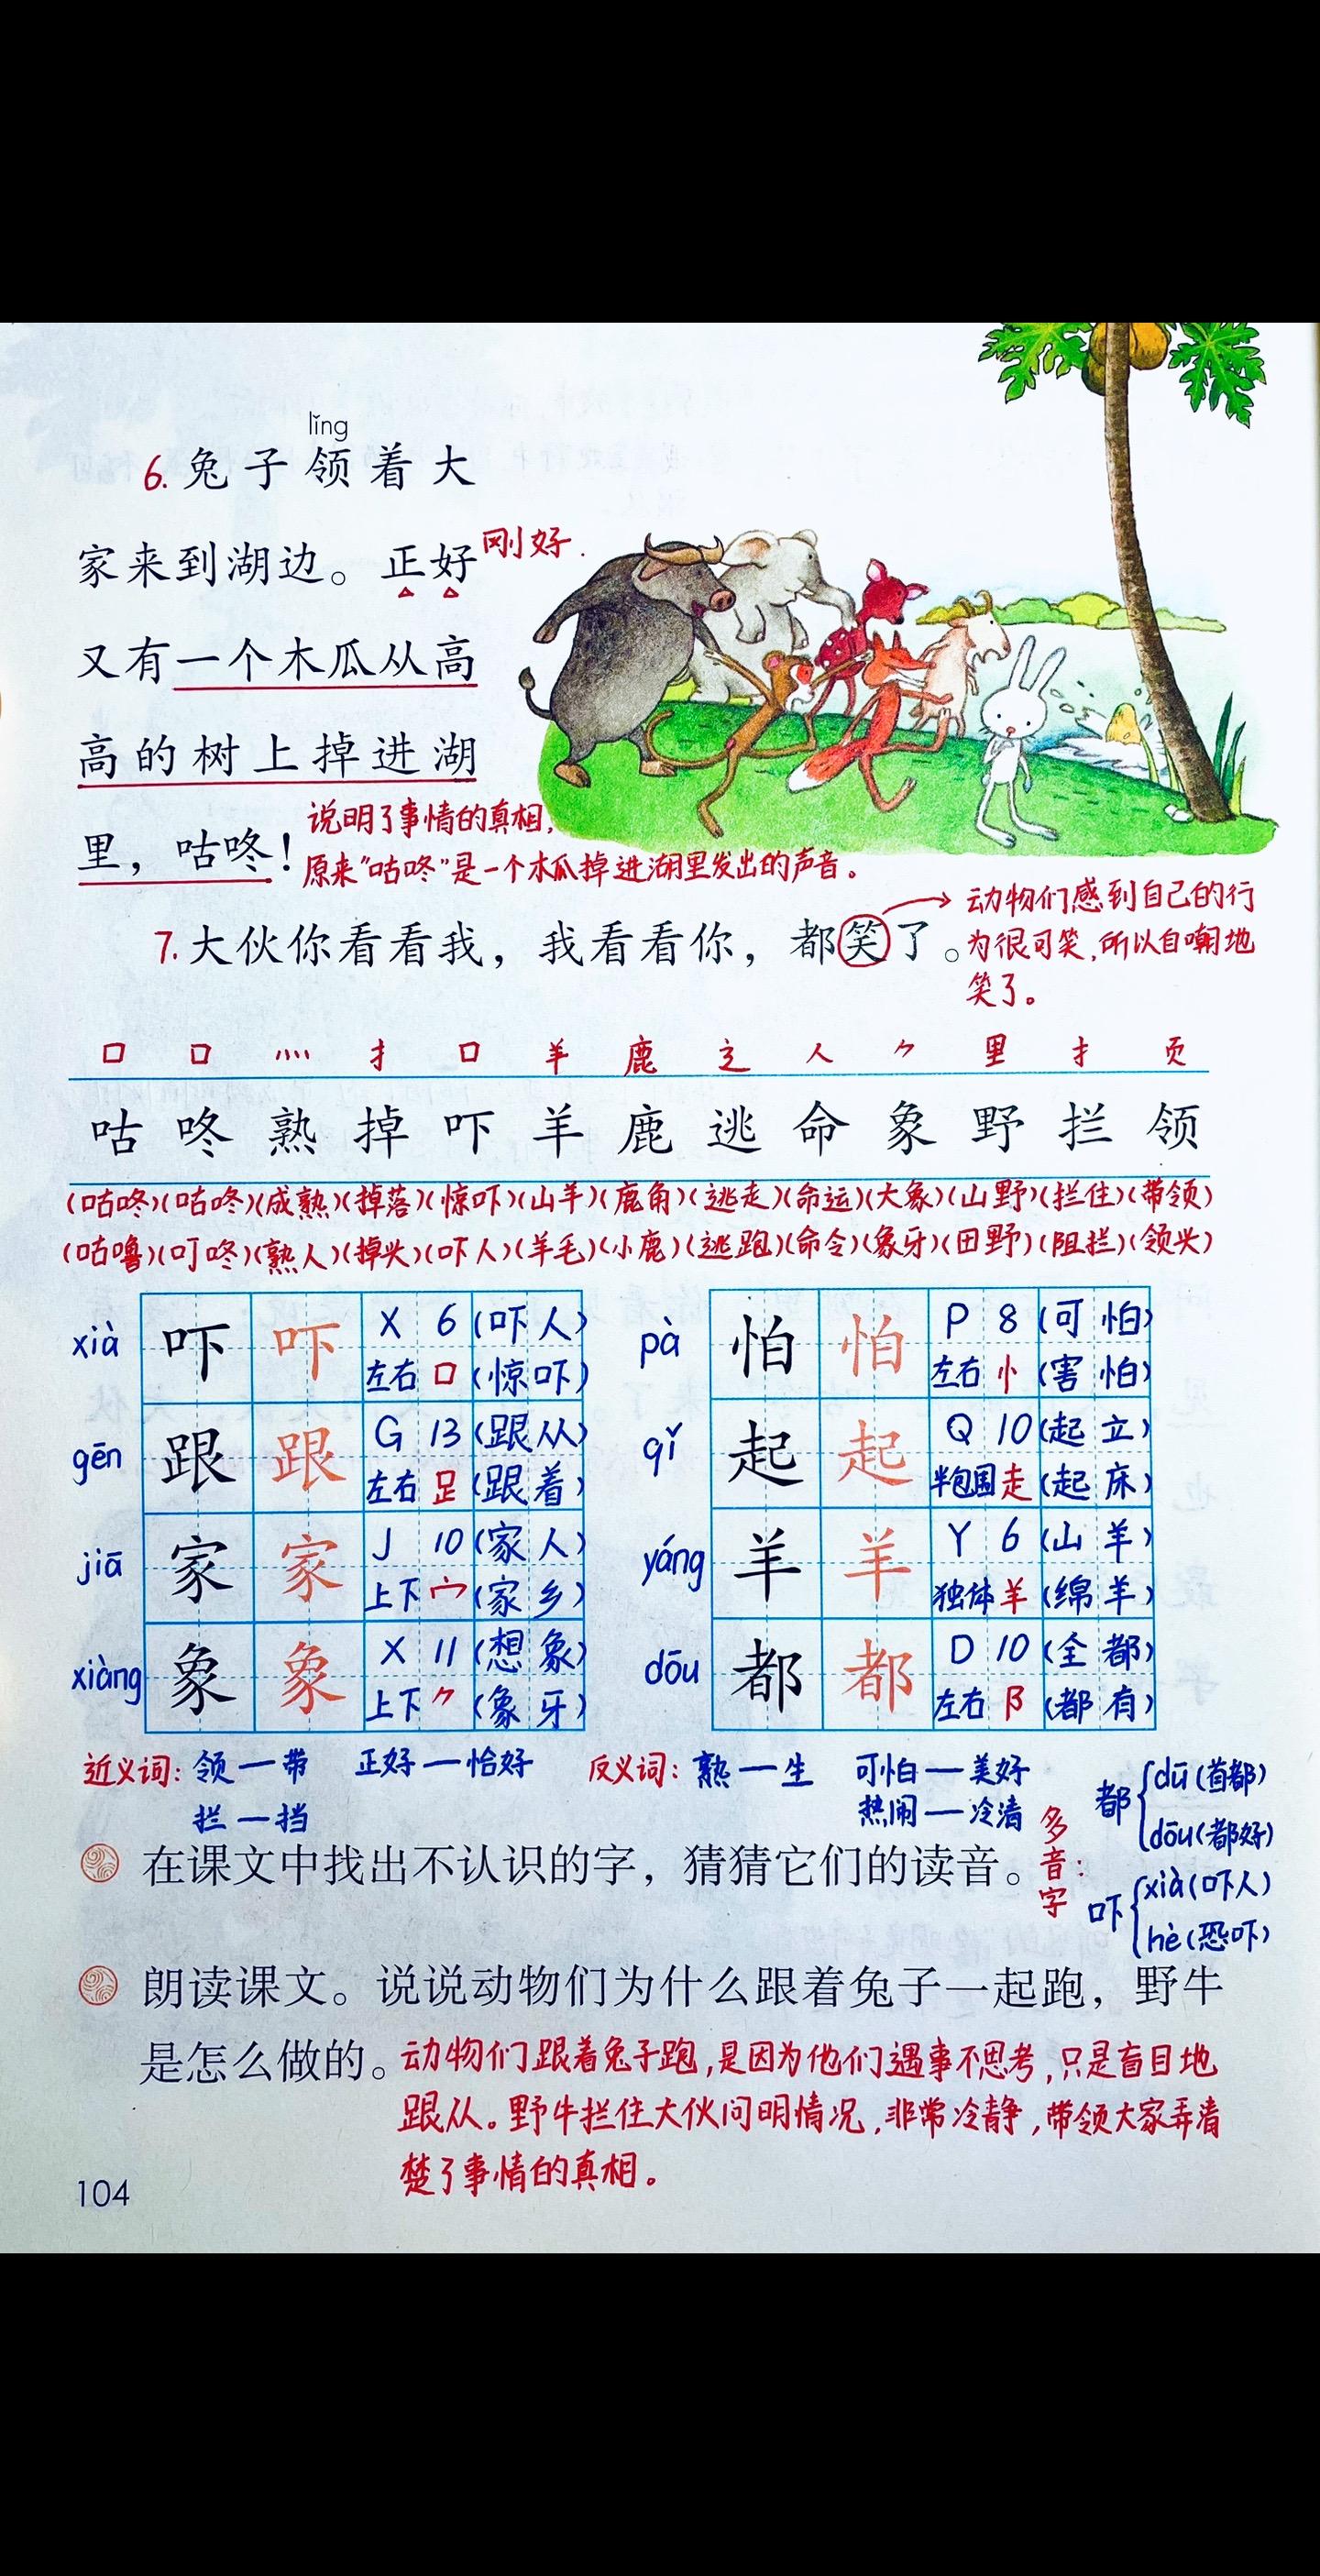 lǐng
6.兔子领着大
家来到湖边。正好 刚好.
又有一个木瓜从高
高的树上掉进湖
里，咕咚！ 说明了事情的真相,
原来"咕咚"是一个木瓜掉进湖里发出的声音。
7.大伙你看看我，我看看你，都笑了。
动物们感到自己的行
为很可笑,所以自嘲地
笑了。
口 口 灬 扌 口 羊 鹿 辶 人 ⺈ 里 扌 页
咕 咚 熟 掉 吓 羊 鹿 逃 命 象 野 拦 领
(咕咚)(咕咚)(成熟)(掉落)(惊吓)(山羊)(鹿角)(逃走)(命运)(大象)(山野)(拦住)(带领)
(咕噜)(叮咚)(熟人)(掉头)(吓人)(羊毛)(小鹿)(逃跑)(命令)(象牙)(田野)(阻拦)(领头)
xià 吓 吓 X 6 (吓人)
左右 口 (惊吓)
pà 怕 怕 P 8 (可怕)
左右 忄 (害怕)
gēn 跟 跟 G 13 (跟从)
左右 𧾷 (跟着)
qǐ 起 起 Q 10 (起立)
半包围 走 (起床)
jiā 家 家 J 10 (家人)
上下 宀 (家乡)
yáng 羊 羊 Y 6 (山羊)
独体 羊 (绵羊)
xiàng 象 象 X 11 (想象)
上下 ⺈ (象牙)
dōu 都 都 D 10 (全都)
左右 阝 (都有)
近义词: 领—带 正好—恰好
拦—挡
反义词: 熟—生 可怕—美好
热闹—冷清
多音字:
都 dū(首都)
dōu(都好)
吓 xià(吓人)
hè(恐吓)
在课文中找出不认识的字，猜猜它们的读音。
朗读课文。说说动物们为什么跟着兔子一起跑，野牛
是怎么做的。
动物们跟着兔子跑,是因为他们遇事不思考,只是盲目地
跟从。野牛拦住大伙问明情况,非常冷静,带领大家弄清
楚了事情的真相。
104